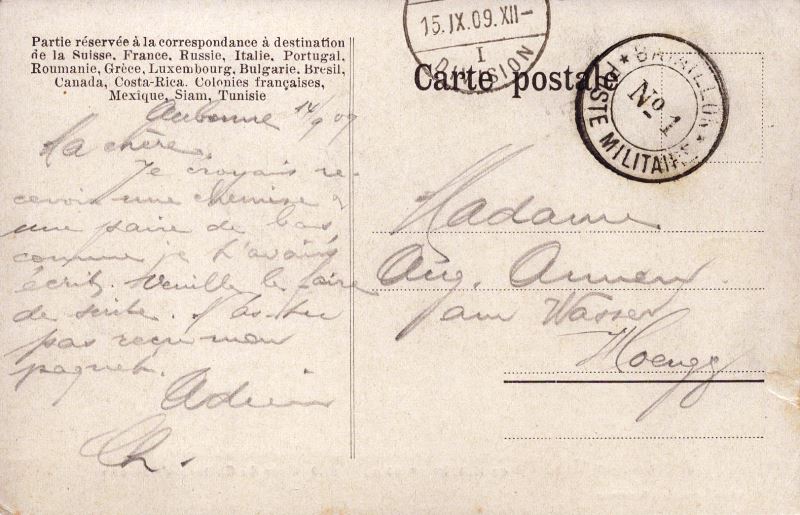 Partie réservée à la correspondance à destination
de la Suisse, France, Russie, Italie, Portugal,
Roumanie, Grèce, Luxembourg, Bulgarie, Bresil,
Canada, Costa-Rica, Colonies françaises,
Mexique, Siam, Tunisie
15. IX. 09. XII–
I
DIVISION
Carte postale
BATAILLON
No 1
POSTE MILITAIRE
Aubonne 14/9 09
Ma chère,
Je croyais re-
cevoir une chemise &
une paire de bas,
comme je t'avais
écrit. Veuille le faire
de suite. N'as-tu
pas reçu mon
paquet.
Adieu
Ch.
Madame
Aug.
am Wasser
Hoengg